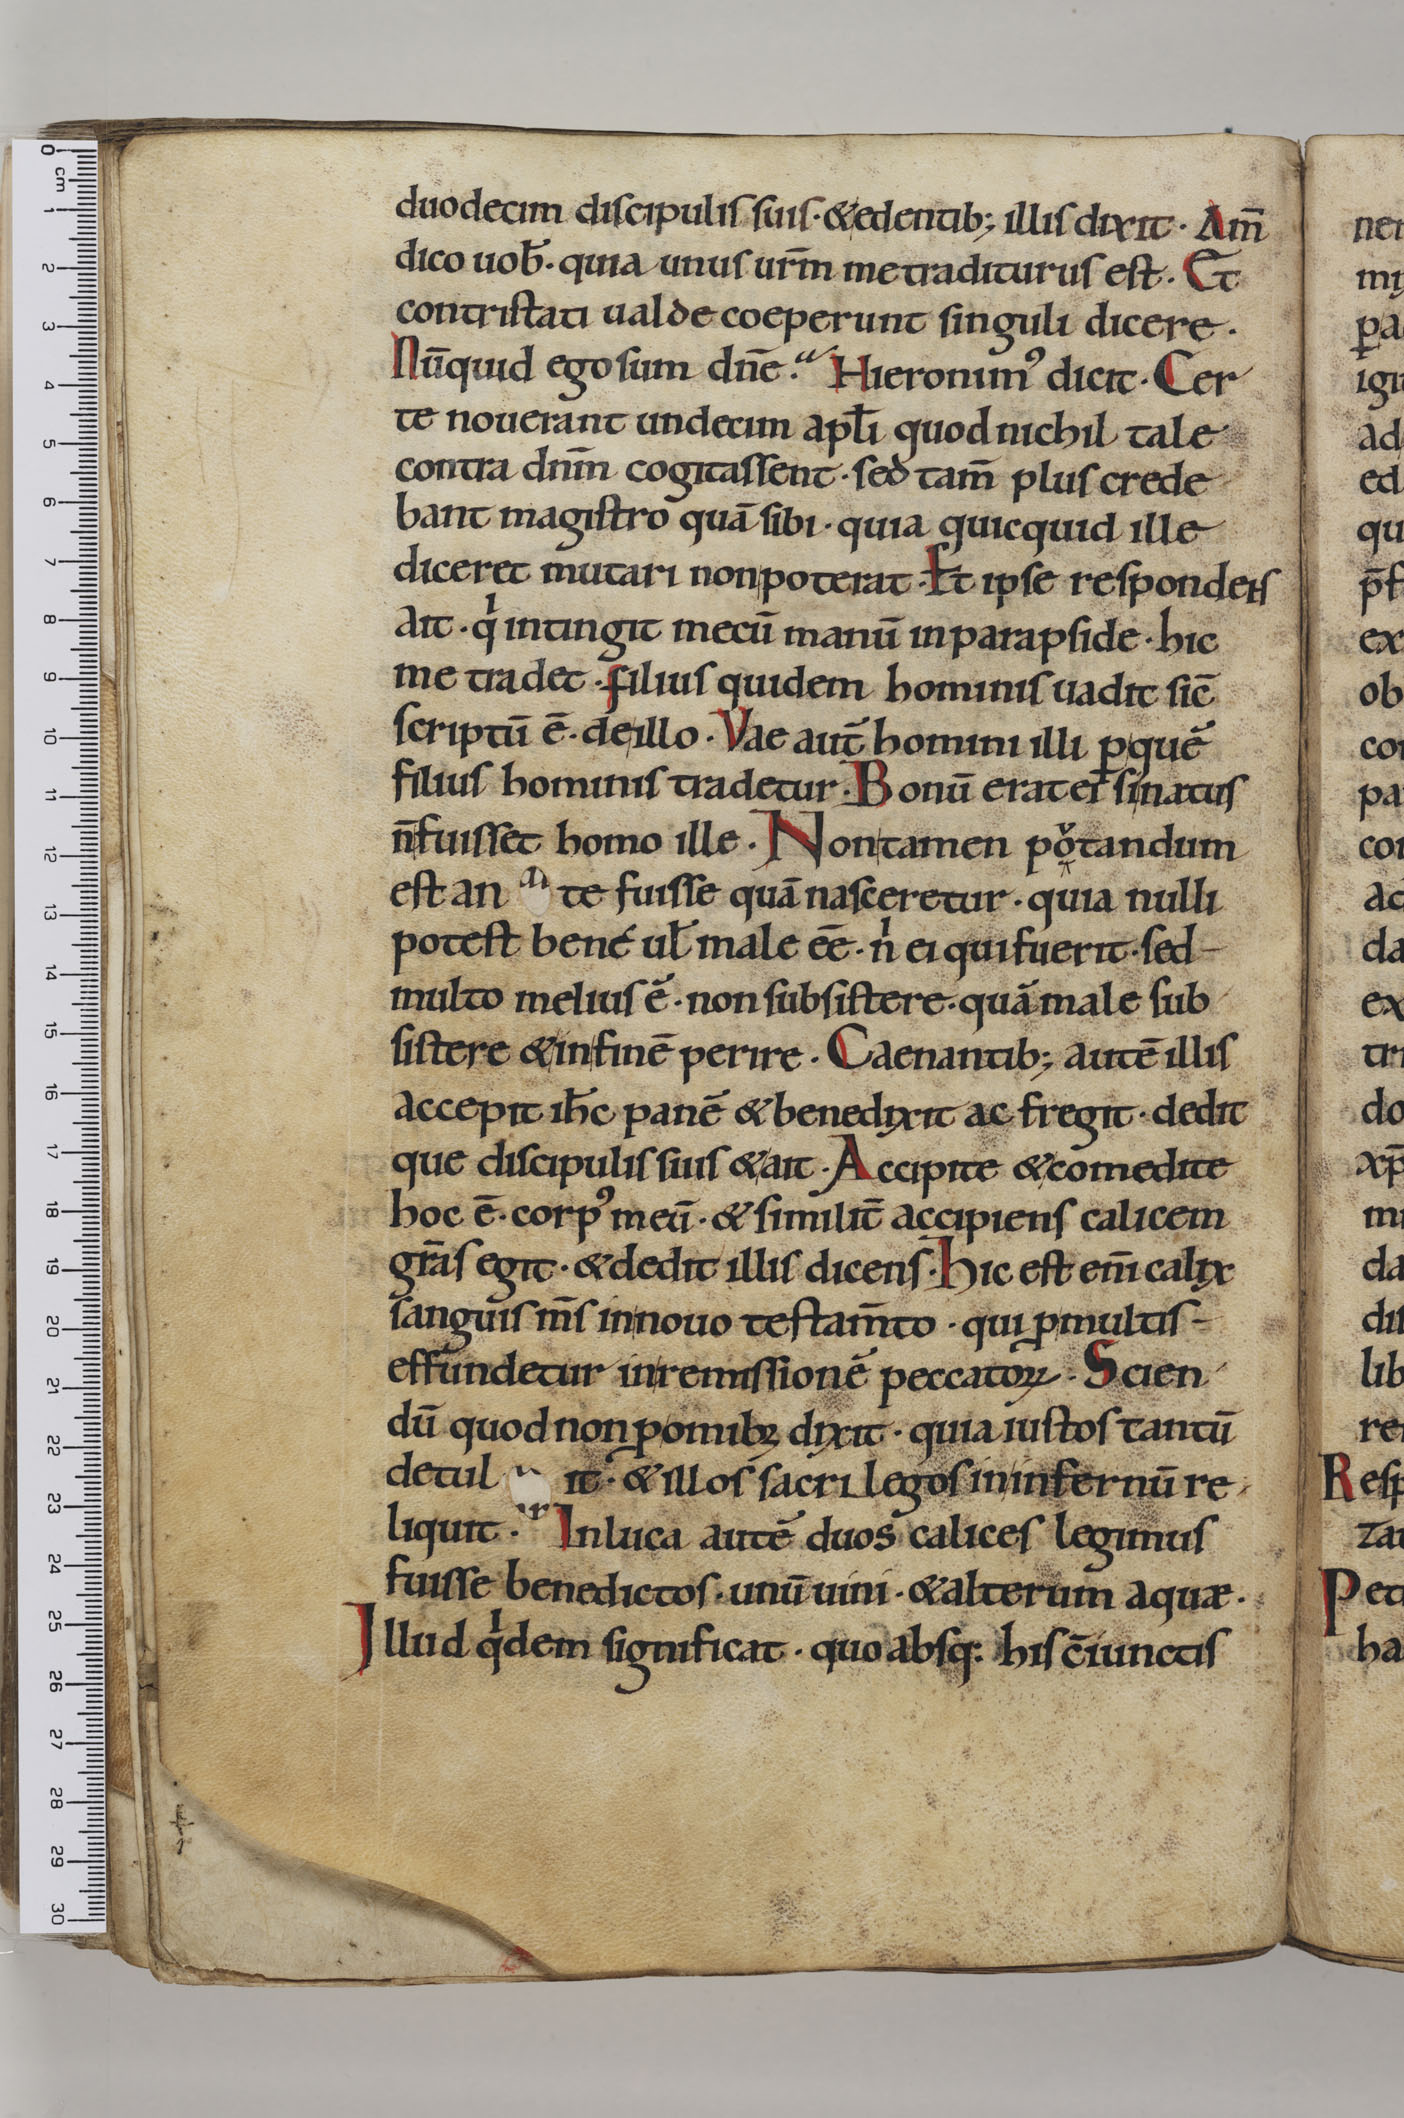 duodecim discipulis suis · & edentib; illis dixit · Am̄
dico uob̄ · quia unus ur̄m me traditurus est · Et
contristati ualde coeperunt singuli dicere ·
Nūquid ego sum dn̄e · Hieronimꝰ dicit · Cer
te nouerant undecim apl̄i quod nichil tale
contra dnm̄ cogitassent · sed tam̄ plus crede
bant magistro quā sibi · quia quicquid ille
diceret mutari non poterat · Et ipse respondens
ait · qͥ intingit mecū manū in parapside · hic
me tradet · filius quidem hominis uadit sic̄
scriptū ē · de illo · Vae aut̄ homini illi ꝑ quē
filius hominis tradetur · Bonū erat ei si natus
n̄ fuisset homo ille · Non tamen putandum
est an te fuisse quā nasceretur · quia nulli
potest bene ul̄ male eē · nͥ ei qui fuerit · sed
multo melius ē · non subsistere · quā male sub
sistere & in finē perire · Caenantib; autē illis
accepit ih̄c panē & benedixit ac fregit · dedit
que discipulis suis & ait · Accipite & comedite
hoc ē · corpꝰ meū · & similit̄ accipiens calicem
gr̄as egit · & dedit illis dicens · Hic est em̄ calix
sanguis m̄s in nouo testam̄to · qui ꝓ multis
effundetur in remissionē peccatoꝝ · Scien
dū quod non ꝓ omnibꝫ dixit · quia iustos tantū
detul it · & illos sacrilegos in infernū re
liquit · In luca autē duos calices legimus
fuisse benedictos · unū uini · & alterum aquæ ·
Illud qͥdem significat · quo absq: his c̄iunctis
ner
pa
igi
ad
ed
qu
ex
ob
con
pa
con
ac
da
ex
tri
do
xp̄
mi
da
dil
lib
rei
Resp
zau
Pet
ha
0 cm 1 2 3 4 5 6 7 8 9 10 11 12 13 14 15 16 17 18 19 20 21 22 23 24 25 26 27 28 29 30